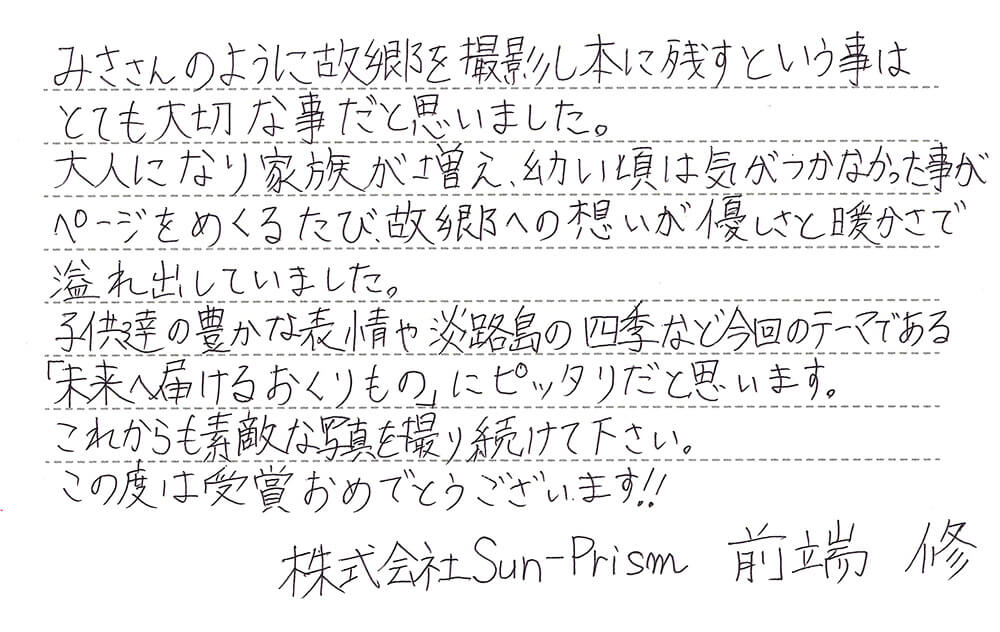 みささんのように故郷を撮影し本に残すという事は
とても大切な事だと思いました。
大人になり家族が増え、幼い頃は気がつかなかった事が
ページをめくるたび、故郷への想いが優しさと暖かさで
溢れ出していました。
子供達の豊かな表情や淡路島の四季など今回のテーマである
「未来へ届けるおくりもの」にピッタリだと思います。
これからも素敵な写真を撮り続けて下さい。
この度は受賞おめでとうございます!!
株式会社Sun-Prism 前端 修